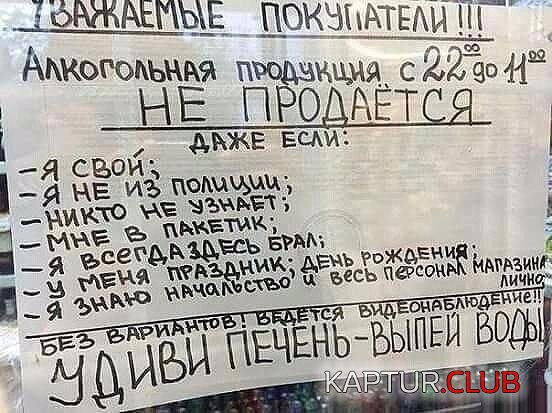 УВАЖАЕМЫЕ ПОКУПАТЕЛИ!!!
АЛКОГОЛЬНАЯ ПРОДУКЦИЯ С 22⁰⁰ до 11⁰⁰
НЕ ПРОДАЁТСЯ
ДАЖЕ ЕСЛИ:
-Я СВОЙ;
-Я НЕ ИЗ ПОЛИЦИИ;
-НИКТО НЕ УЗНАЕТ;
-МНЕ В ПАКЕТИК;
-Я ВСЕГДА ЗДЕСЬ БРАЛ;
-У МЕНЯ ПРАЗДНИК; ДЕНЬ РОЖДЕНИЯ;
-Я ЗНАЮ НАЧАЛЬСТВО И ВЕСЬ ПЕРСОНАЛ МАГАЗИНА
ЛИЧНО
БЕЗ ВАРИАНТОВ! ВЕДЁТСЯ ВИДЕОНАБЛЮДЕНИЕ!!
УДИВИ ПЕЧЕНЬ-ВЫПЕЙ ВОДЫ
KAPTUR.CLUB